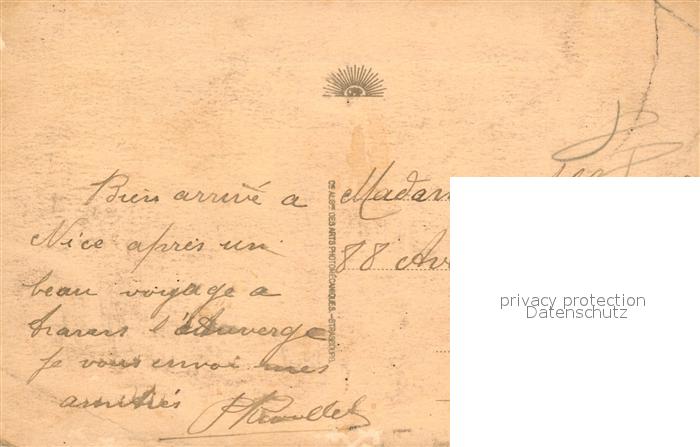 Bien arrivé a
Nice après un
beau voyage a
travers l'Auvergne
Je vous envoi mes
amitiés
Cie ALSne DES ARTS PHOTOMÉCANIQUES. - STRASBOURG
Madam
88 Av
privacy protection
Datenschutz